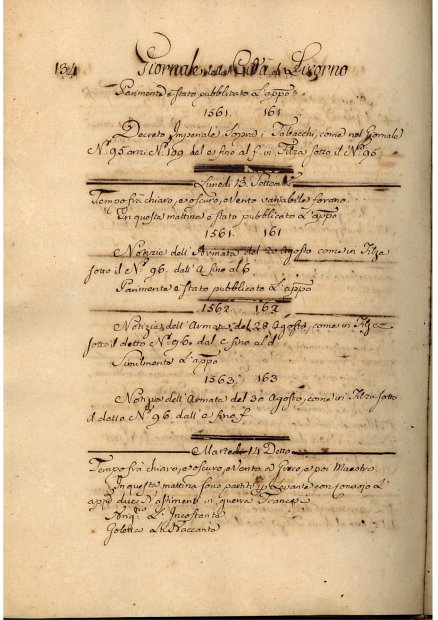 134 Giornale della Città di Livorno
Parimente è stato pubblicato L'appo
1561. 161
Decreto Imperiale sopra i Tabacchi, come nel Giornale
Nº 95 anzi Nº 109 del e fino al f in Filza sotto il Nº 95
Lunedì 13. Settembre
Tempo frà chiaro, e oscuro, e Vento variabile forano.
In questa mattina è stato pubblicato L'appo
1561. 161
Notizie dell'Armata del 20 Agosto come in Filza
sotto il Nº 96. dall'a fino al b.
Parimente è stato pubblicato L'appo
1562 162
Notizie dell'Armata del 28 Agosto, come in Filza
sotto il detto Nº 96. dal c fino al d
Similmente L'appo
1563. 163
Notizie dell'Armata del 30 Agosto, come in Filza sotto
il detto Nº 96 dall'e fino f.
Martedì 14 Detto
Tempo frà chiaro, e oscuro, e Vento a Greco, e poi Maestro.
In questa mattina sono partiti p Levante con convojo L'
appi due Bastimenti in guerra Francesi
Brigno L'Incostante
Goletta